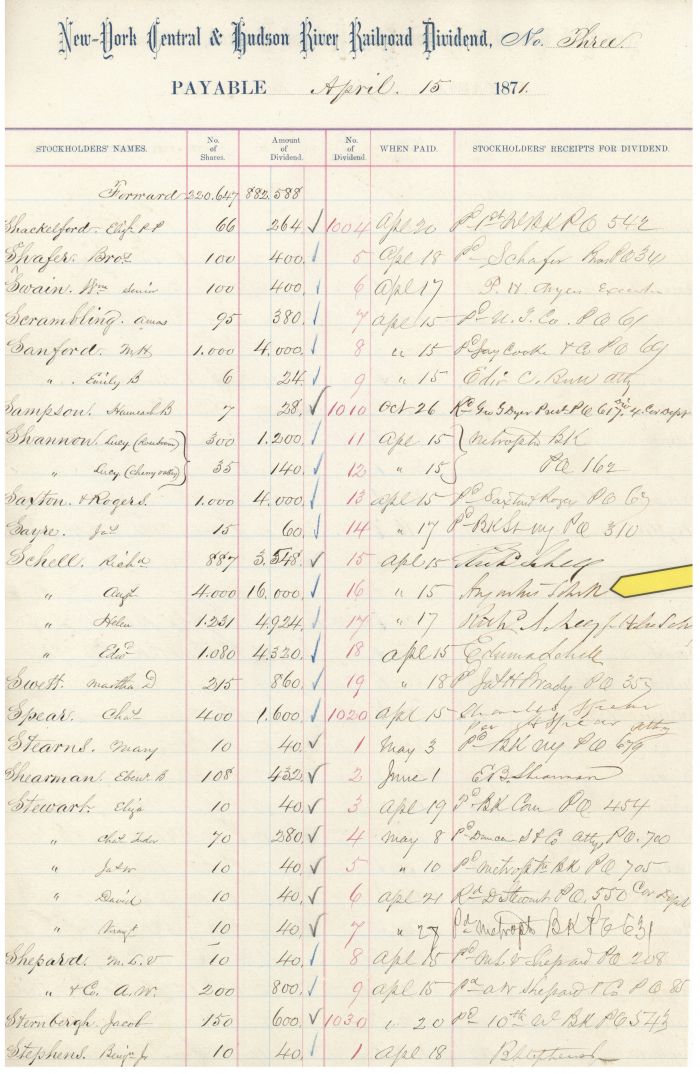 New-York Central & Hudson River Railroad Dividend, No. Three.
PAYABLE April. 15 1871.
STOCKHOLDERS' NAMES. No. of Shares. Amount of Dividend. No. of Dividend. WHEN PAID. STOCKHOLDERS' RECEIPTS FOR DIVIDEND.
Forward 220.647 882.588
Shackelford. 66 264 1004 Apl 20 PO 542
Shafer. Bros 100 400. 5 Apl 18 Schafer Bros PO 34
Swain. Wm 100 400. 6 Apl 17 P. H.
Scrambling. Amos 95 380. 7 Apl 15 U. T. Co. PO 61
Sanford. M H 1.000 4.000. 8 " 15 Jay Cooke & Co PO 69
" . Emily B 6 24. 9 " 15 C. atty
Sampson. Hannah B 7 28. 1010 Oct 26 Geo G Dyer Prest PO 617.
Shannon. Lucy 300 1.200. 11 Apl 15 Metropts BK
" Lucy 35 140. 12 " 15 PO 162
Saxton. & Rogers. 1.000 4.000. 13 Apl 15 Saxton & Roger PO
Sayre. Jas 15 60. 14 " 17 BK St NY PO 310
Schell. Richd 887 3.548. 15 Apl 15 Schell
" Augs 4.000 16.000. 16 " 15 Augustus Schell
" Helen 1.231 4.924. 17 " 17 Richd Helen Schell
" Edwd 1.080 4.320. 18 Apl 15 Edward Schell
Swett. Martha D 215 860. 19 " 18 Jas H Prady PO 353
Spear. Chas 400 1.600. 1020 Apl 15 Charles Spear
per Spear Atty
Stearns. Mary 10 40. 1 May 3 BK NY PO 679
Shearman. Eben B 108 432. 2 June 1 E.B. Shearman
Stewart. Eliza 10 40. 3 Apl 19 BK Com PO. 454
" Chas 70 280. 4 May 8 Duncan S & Co Attys PO. 700
" Jas W 10 40. 5 " 10 Metropts BK PO 705
" David 10 40. 6 Apl 21 D Stewart PO. 550
" 10 40. 7 " 27 Metropts BK PO 631
Shepard. 10 40. 8 Apl 15 Shepard PO 208
" & Co. A.W. 200 800. 9 Apl 15 A W Shepard & Co PO 85
Sternbergh. Jacob 150 600. 1030 " 20 10th W BK PO 543
Stephens. Benj Jr 10 40. 1 Apl 18 B Stephens Jr